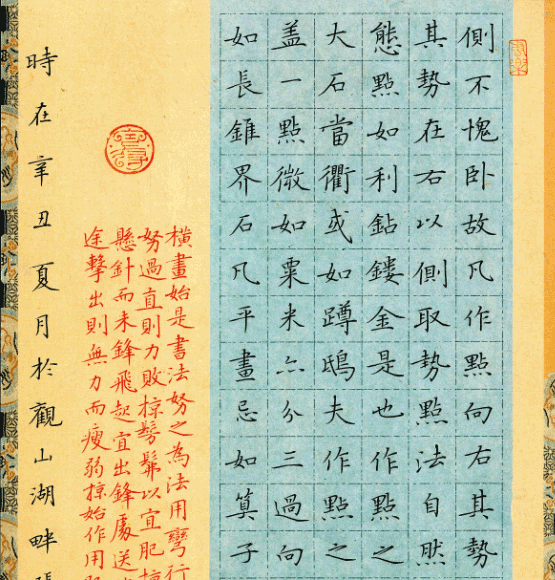 側不愧卧故凡作點向右其勢
其勢在右以側取勢點法自然
態點如利鉆鏤金是也作點之
大石當衢或如蹲鴟夫作點之
盖一點微如粟米亦分三過向
如長錐界石凡平畫忌如算子
橫畫始是書法努之為法用彎行
努過直則力敗掠髣髴以宜肥
懸針而未鋒飛起宜出鋒處送
途擊出則無力而瘦弱掠始作用
時在辛丑夏月於觀山湖畔